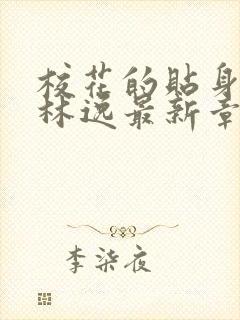 校花的贴身
林逸最新章
李柒夜